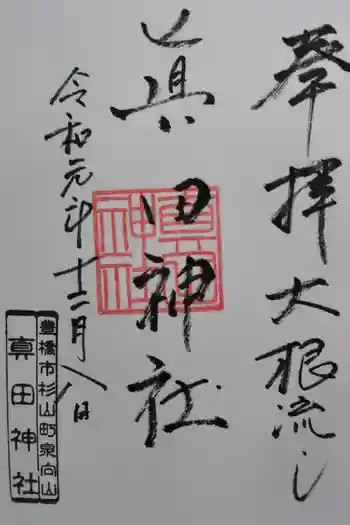 奉拝大根流し
眞田神社
令和元年十二月八日
眞田神社
豊橋市杉山町泉向山
真田神社